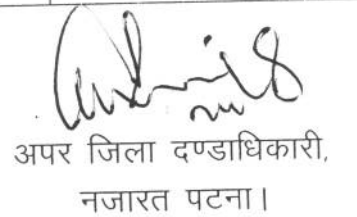 अपर जिला दण्डाधिकारी,
नजारत पटना।